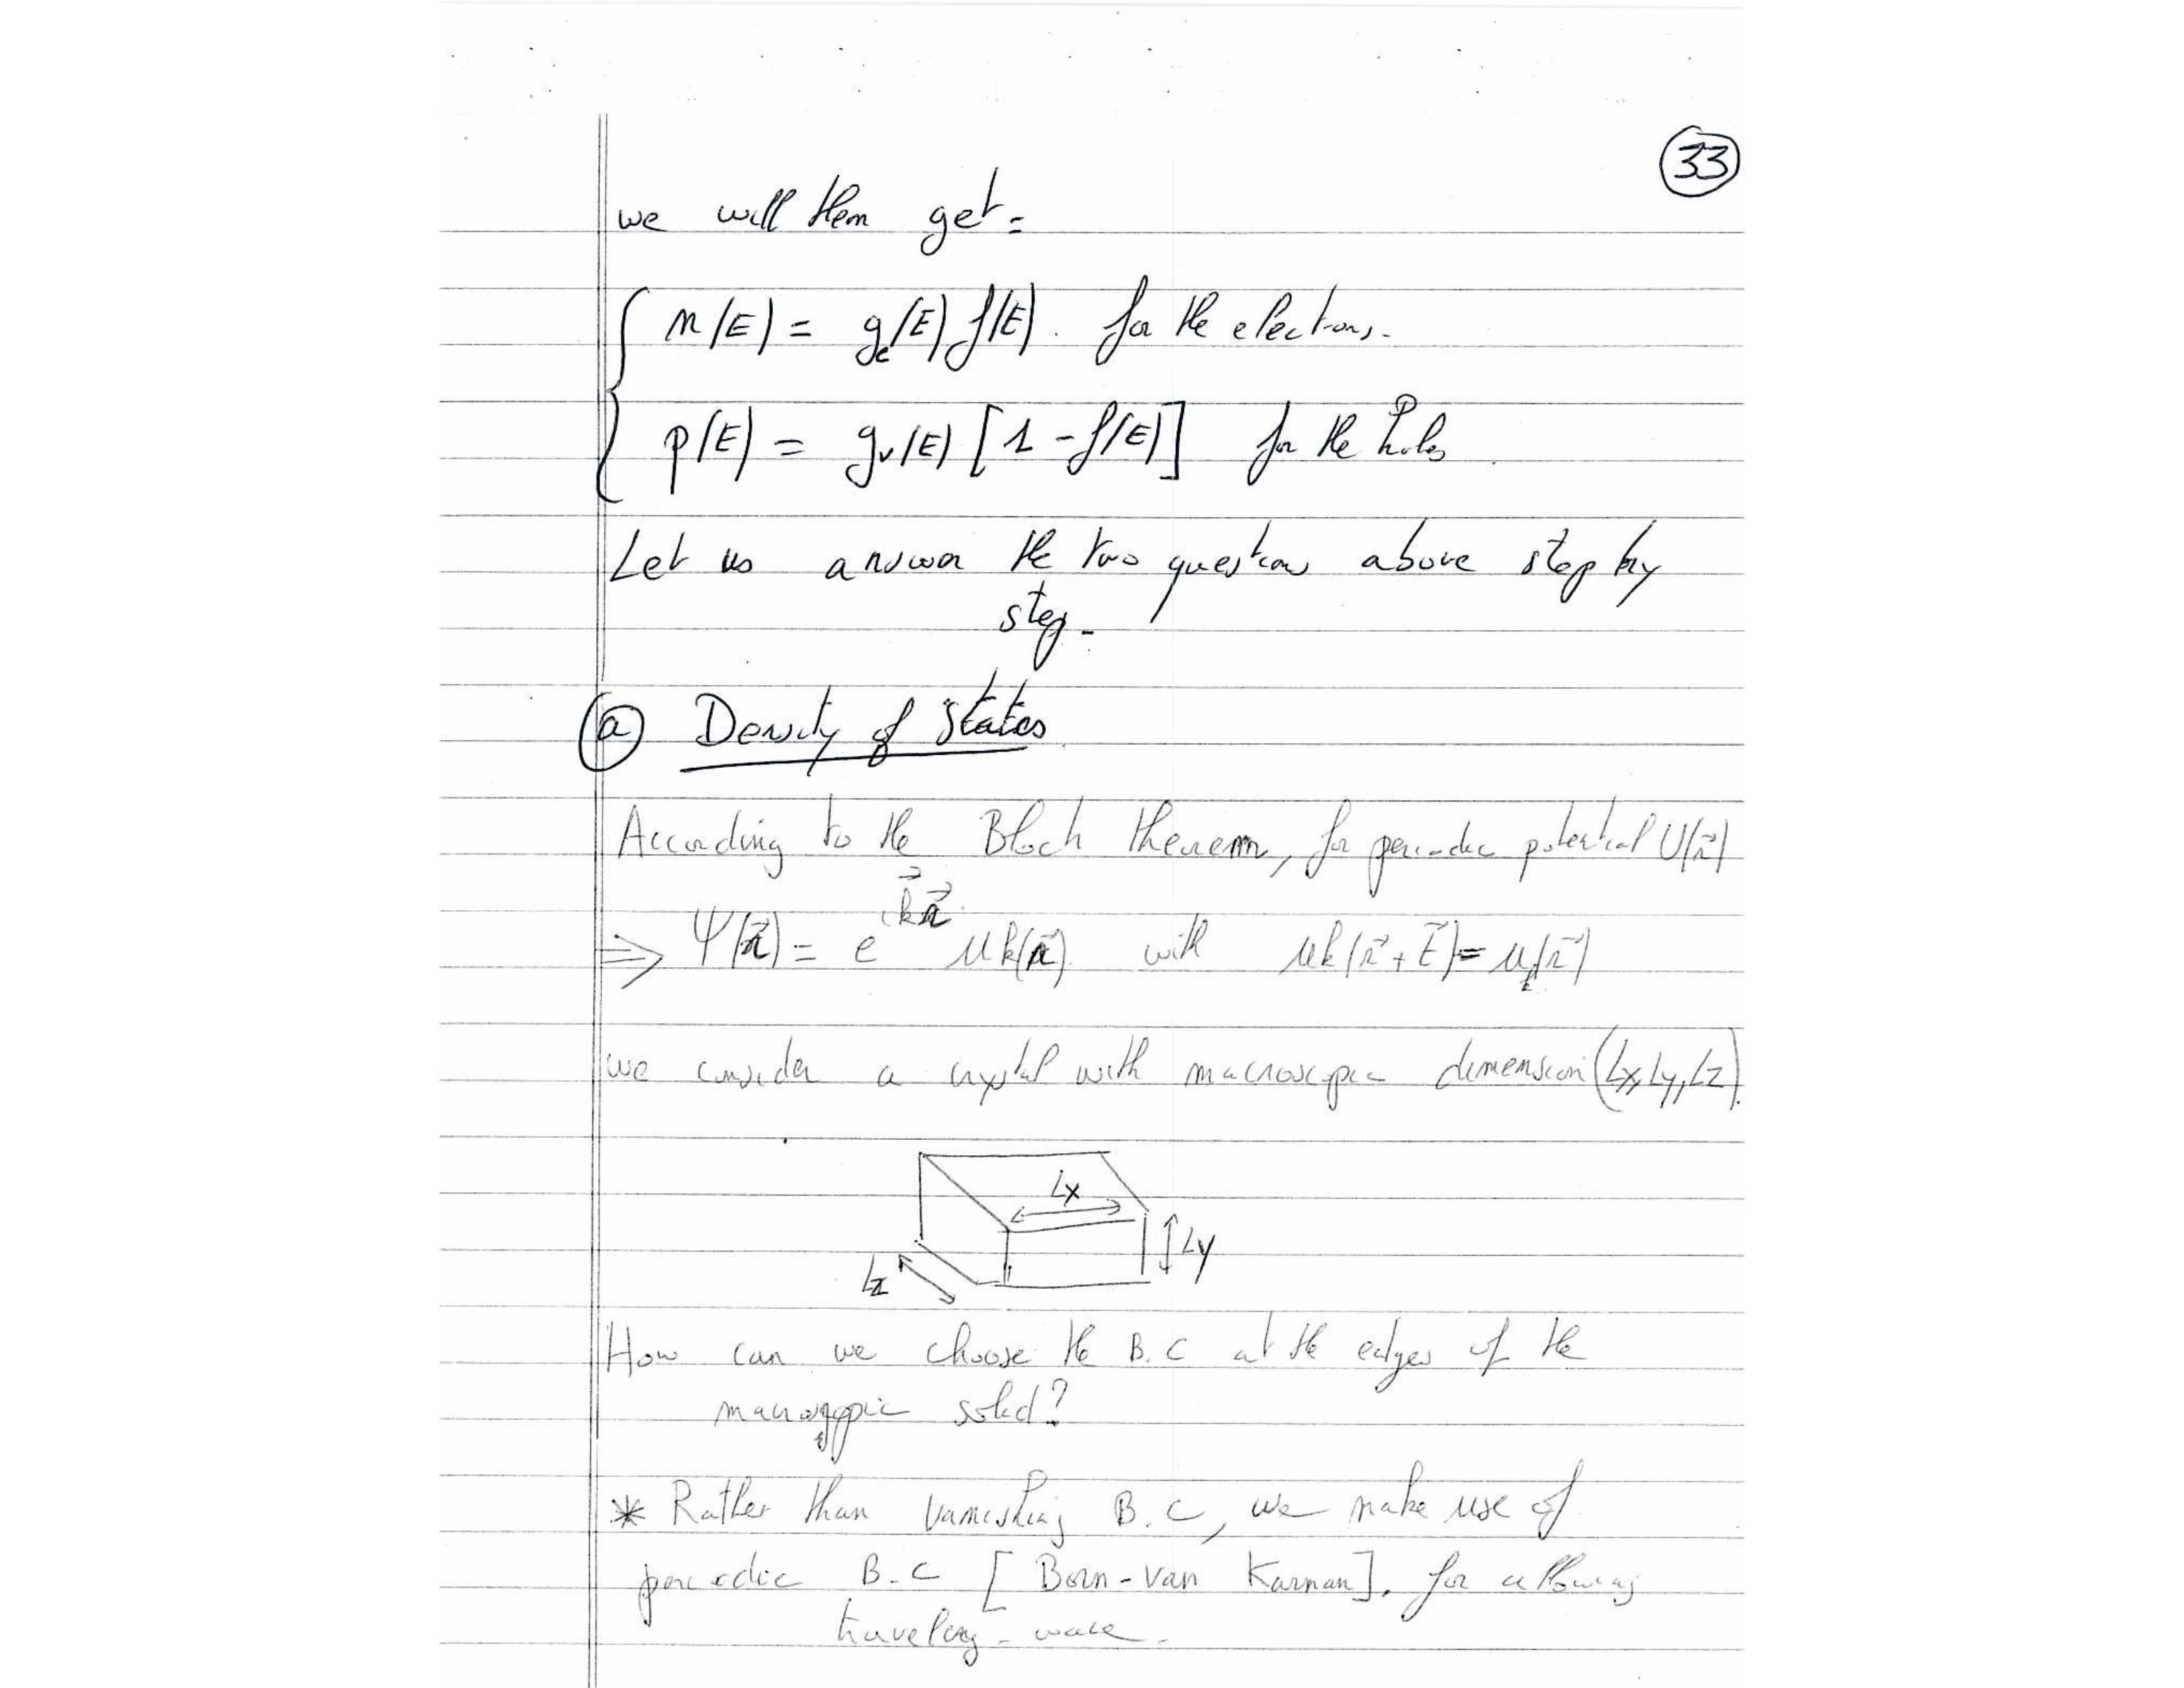 33
we will then get:
n(E) = gc(E) f(E). for the electrons.
p(E) = gv(E) [1 - f(E)] for the holes
Let us answer the two questions above step by
step.
a Density of States
According to the Bloch theorem, for periodic potential U(r⃗)
⇒ Ψ(r⃗) = e^{ik⃗r⃗} uk(r⃗) with uk(r⃗ + t⃗) = uk(r⃗)
we consider a crystal with macroscopic dimension (Lx, Ly, Lz).
Lx
Ly
Lz
How can we choose the B.C at the edges of the
macroscopic solid?
* Rather than vanishing B.C, we make use of
periodic B.C [Born-Van Karman]. for allowing
traveling-wave.